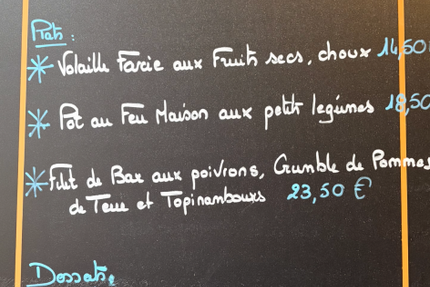 Plats :
* Volaille Farcie aux Fruits secs, choux 14,50
* Pot au Feu Maison aux petit legumes 18,50
* Filet de Bar aux poivrons, Crumble de Pommes
de Terre et Topinambours 23,50 €
Desserts